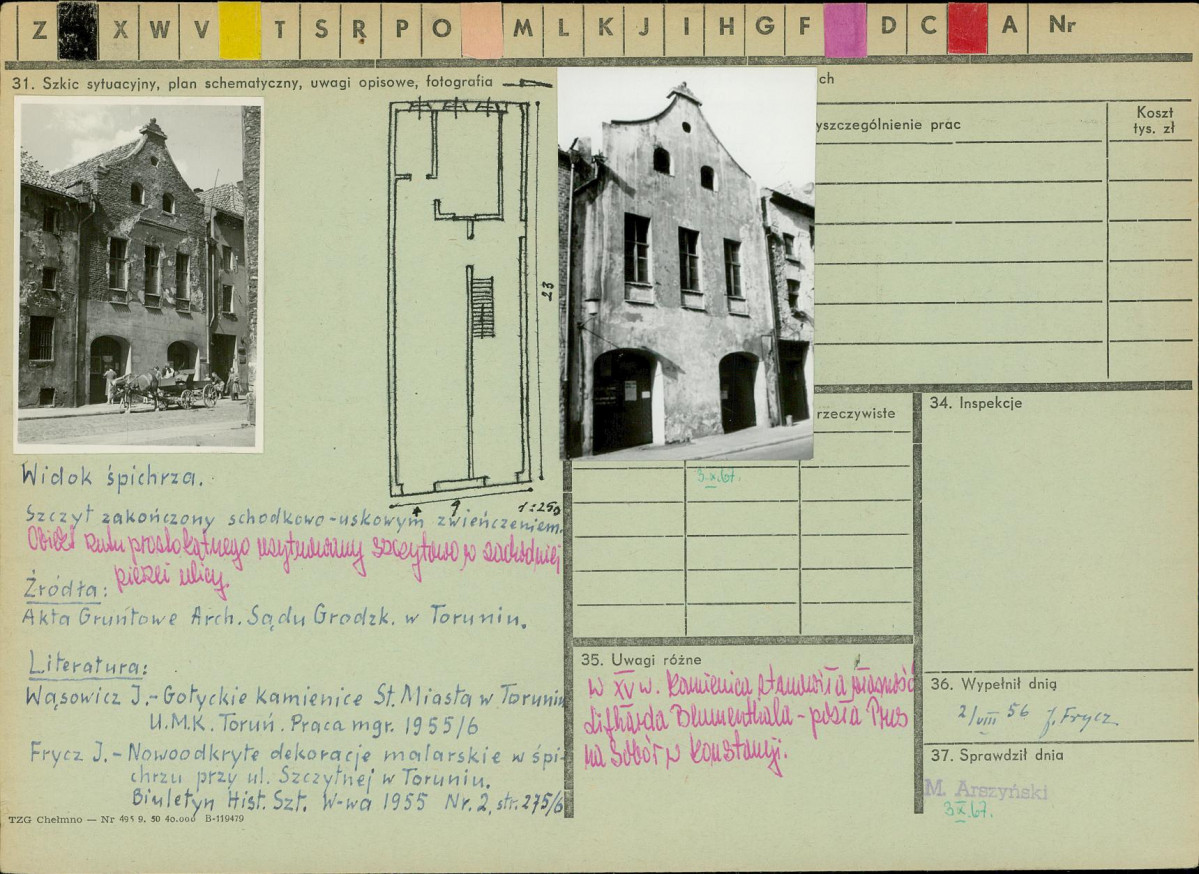 Z X W V T S R P O M L K J I H G F D C A Nr
31. Szkic sytuacyjny, plan schematyczny, uwagi opisowe, fotografia
ch
yszczególnienie prac
Koszt
tys. zł
23
9
1:250
Widok śpichrza.
Szczyt zakończony schodkowo-uskowym zwieńczeniem.
Obiekt rzutu prostokątnego usytuowany szczytowo, w zachodniej
pierzei ulicy.
Źródła:
Akta Gruntowe Arch. Sądu Grodzk. w Toruniu.
Literatura:
Wąsowicz J.- Gotyckie kamienice St. Miasta w Toruniu
U.M.K. Toruń. Praca mgr. 1955/6
Frycz J.- Nowoodkryte dekoracje malarskie w śpi-
chrzu przy ul. Szczytnej w Toruniu.
Biuletyn Hist. Szt. W-wa 1955 Nr. 2, str. 275/6
TZG Chełmno — Nr 495 9. 50 40.000 B-119479
rzeczywiste
3.X.67.
34. Inspekcje
35. Uwagi różne
w XV w. kamienica stanowiła własność
Lifharda Blumenthala - posła Prus
na Sobór w Konstancji.
36. Wypełnił dnia
2/VIII 56 J. Frycz.
37. Sprawdził dnia
M. Arszyński
3.X.67.